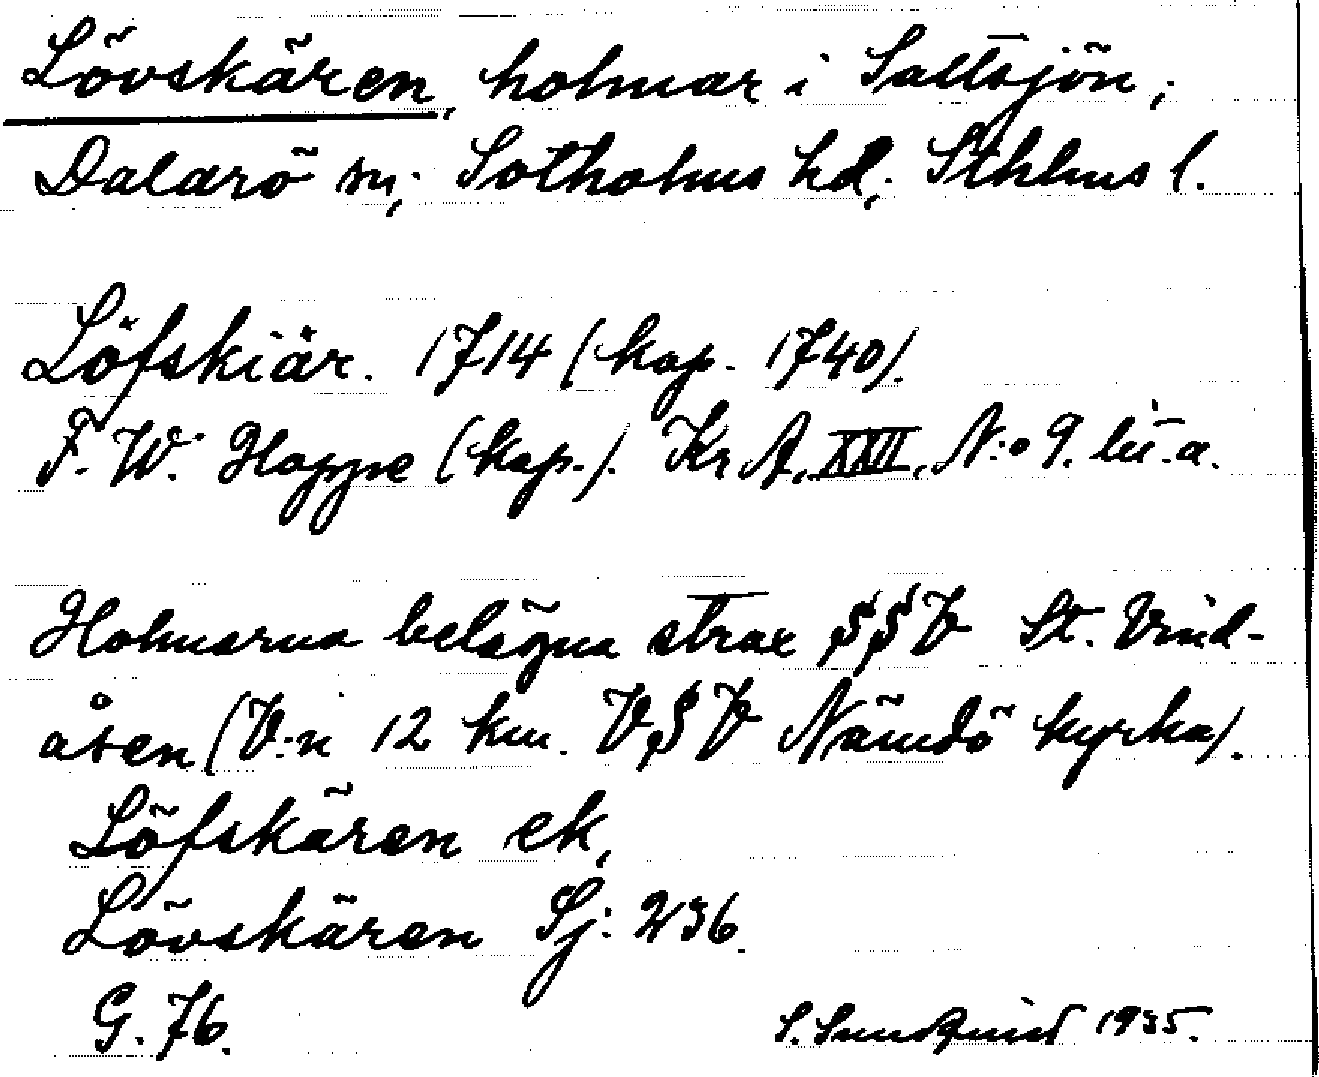 Lövskären, holmar i Saltsjön,
Dalarö sn, Sotholms hd, Sthlms l.
Löfskiär. 1714 (kop. 1740).
F. W. Hoppe (kop.). Kr A, XXII, N:o 9. lit. a.
Holmarna belägna strax SSV St. Vind-
åsen (V:n 12 km. VSV Nämdö kyrka).
Löfskären ek,
Lövskären Sj: 236.
G. 76.
S. Sundquist 1935.